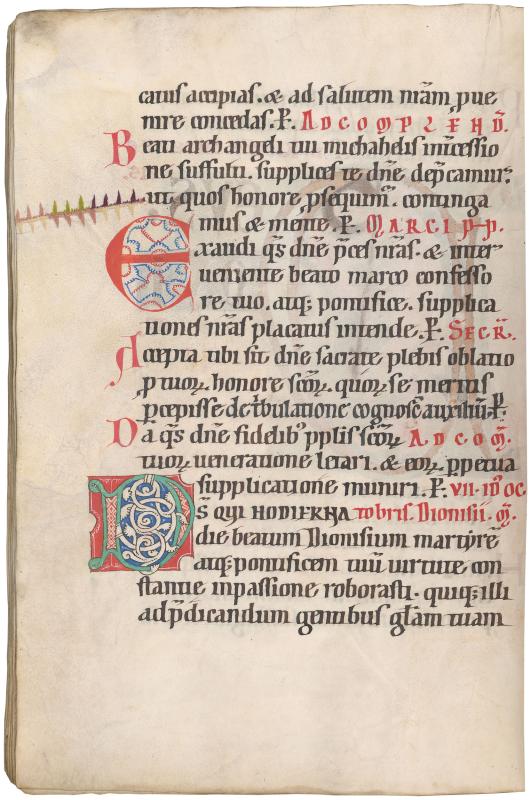 catus accipias. & ad salutem nr̄am, p̱ue
nire concedas. P̄. AD COMPLENḌ.
Beati archangeli tui michahelis int̄cessio
ne suffulti. supplices te dn̄e dep̄camur.
ut quos honore p̱sequim̄. continga
mus & mente. P̄. MARCI PP.
Exaudi qs̄ dn̄e p̄ces nr̄as. & inter
ueniente beato marco confesso
re tuo. atq; pontifice. supplica
tiones nr̄as placatus intende. P̄. SECR̄.
Accepta tibi sit dn̄e sacrate plebis oblatio
p̱ tuoꝝ honore scōꝝ. quoꝝ se meritis
p̱cepisse de t̄bulatione cognosc̄ auxiliū. P̄.
Da qs̄ dn̄e fidelib; pplis scōꝝ AD COM̄.
tuoꝝ ueneratione letari. & eoꝝ p̱petua
supplicatione muniri. P̄. VII. ID' OC
DS̄ QUI HODIERNA tobris. Dionisii. M̄.
die beatum Dionisium martyrē
atq; pontificem tuū uirtute con
stantie in passione roborasti. quiq; illi
ad p̄dicandum gentibus gl̄am tuam